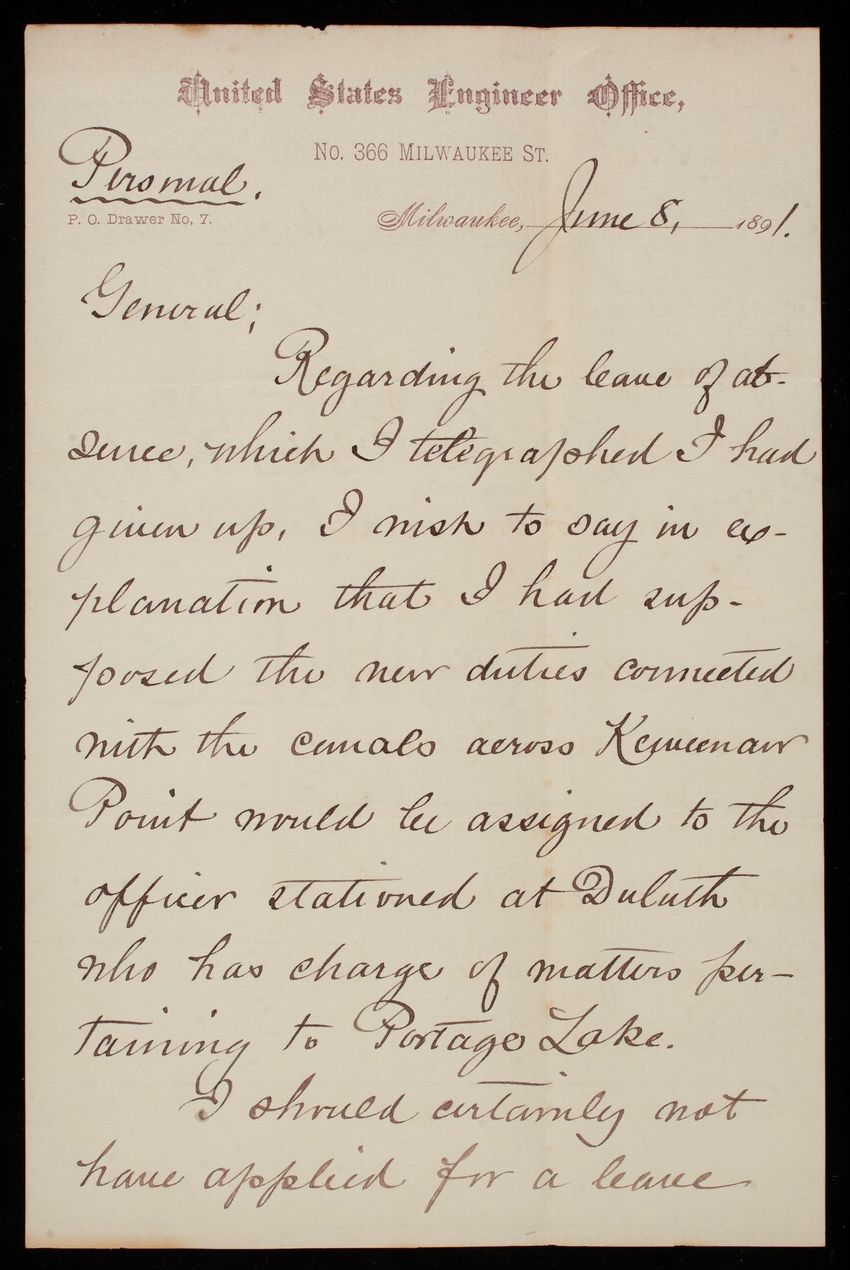 United States Engineer Office,
No. 366 Milwaukee St.
Personal.
P. O. Drawer No, 7.
Milwaukee, June 8, 1891.
General;
Regarding the leave of ab-
sence, which I telegraphed I had
given up, I wish to say in ex-
planation that I had sup-
posed the new duties connected
with the canals across Keweenaw
Point would be assigned to the
officer stationed at Duluth
who has charge of matters per-
taining to Portage Lake.
I should certainly not
have applied for a leave